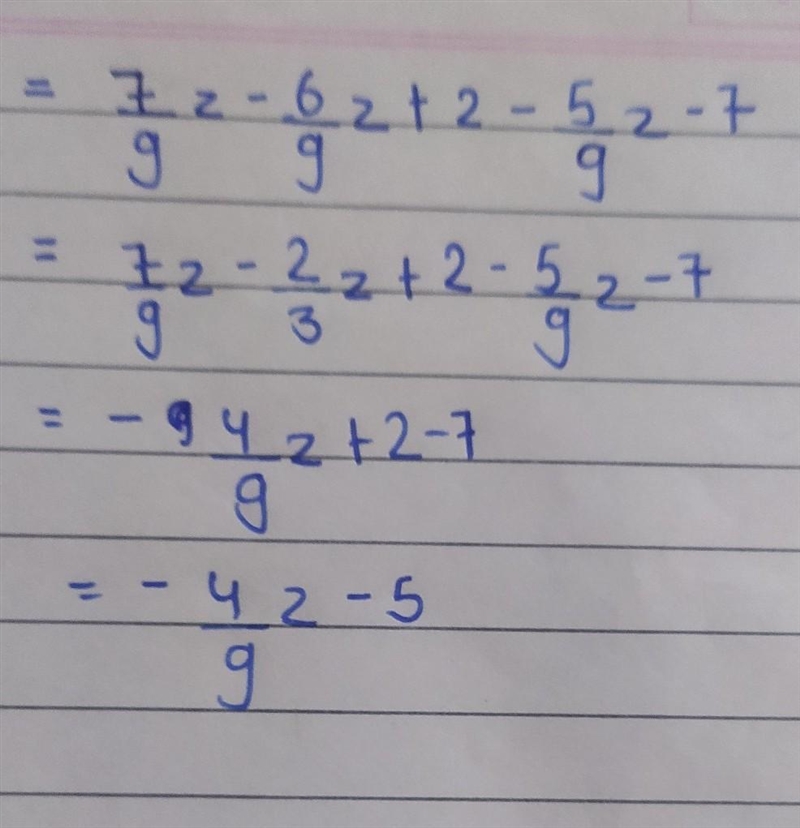 = 7/9 z - 6/9 z + 2 - 5/9 z - 7
= 7/9 z - 2/3 z + 2 - 5/9 z - 7
= - 4/9 z + 2 - 7
= - 4/9 z - 5